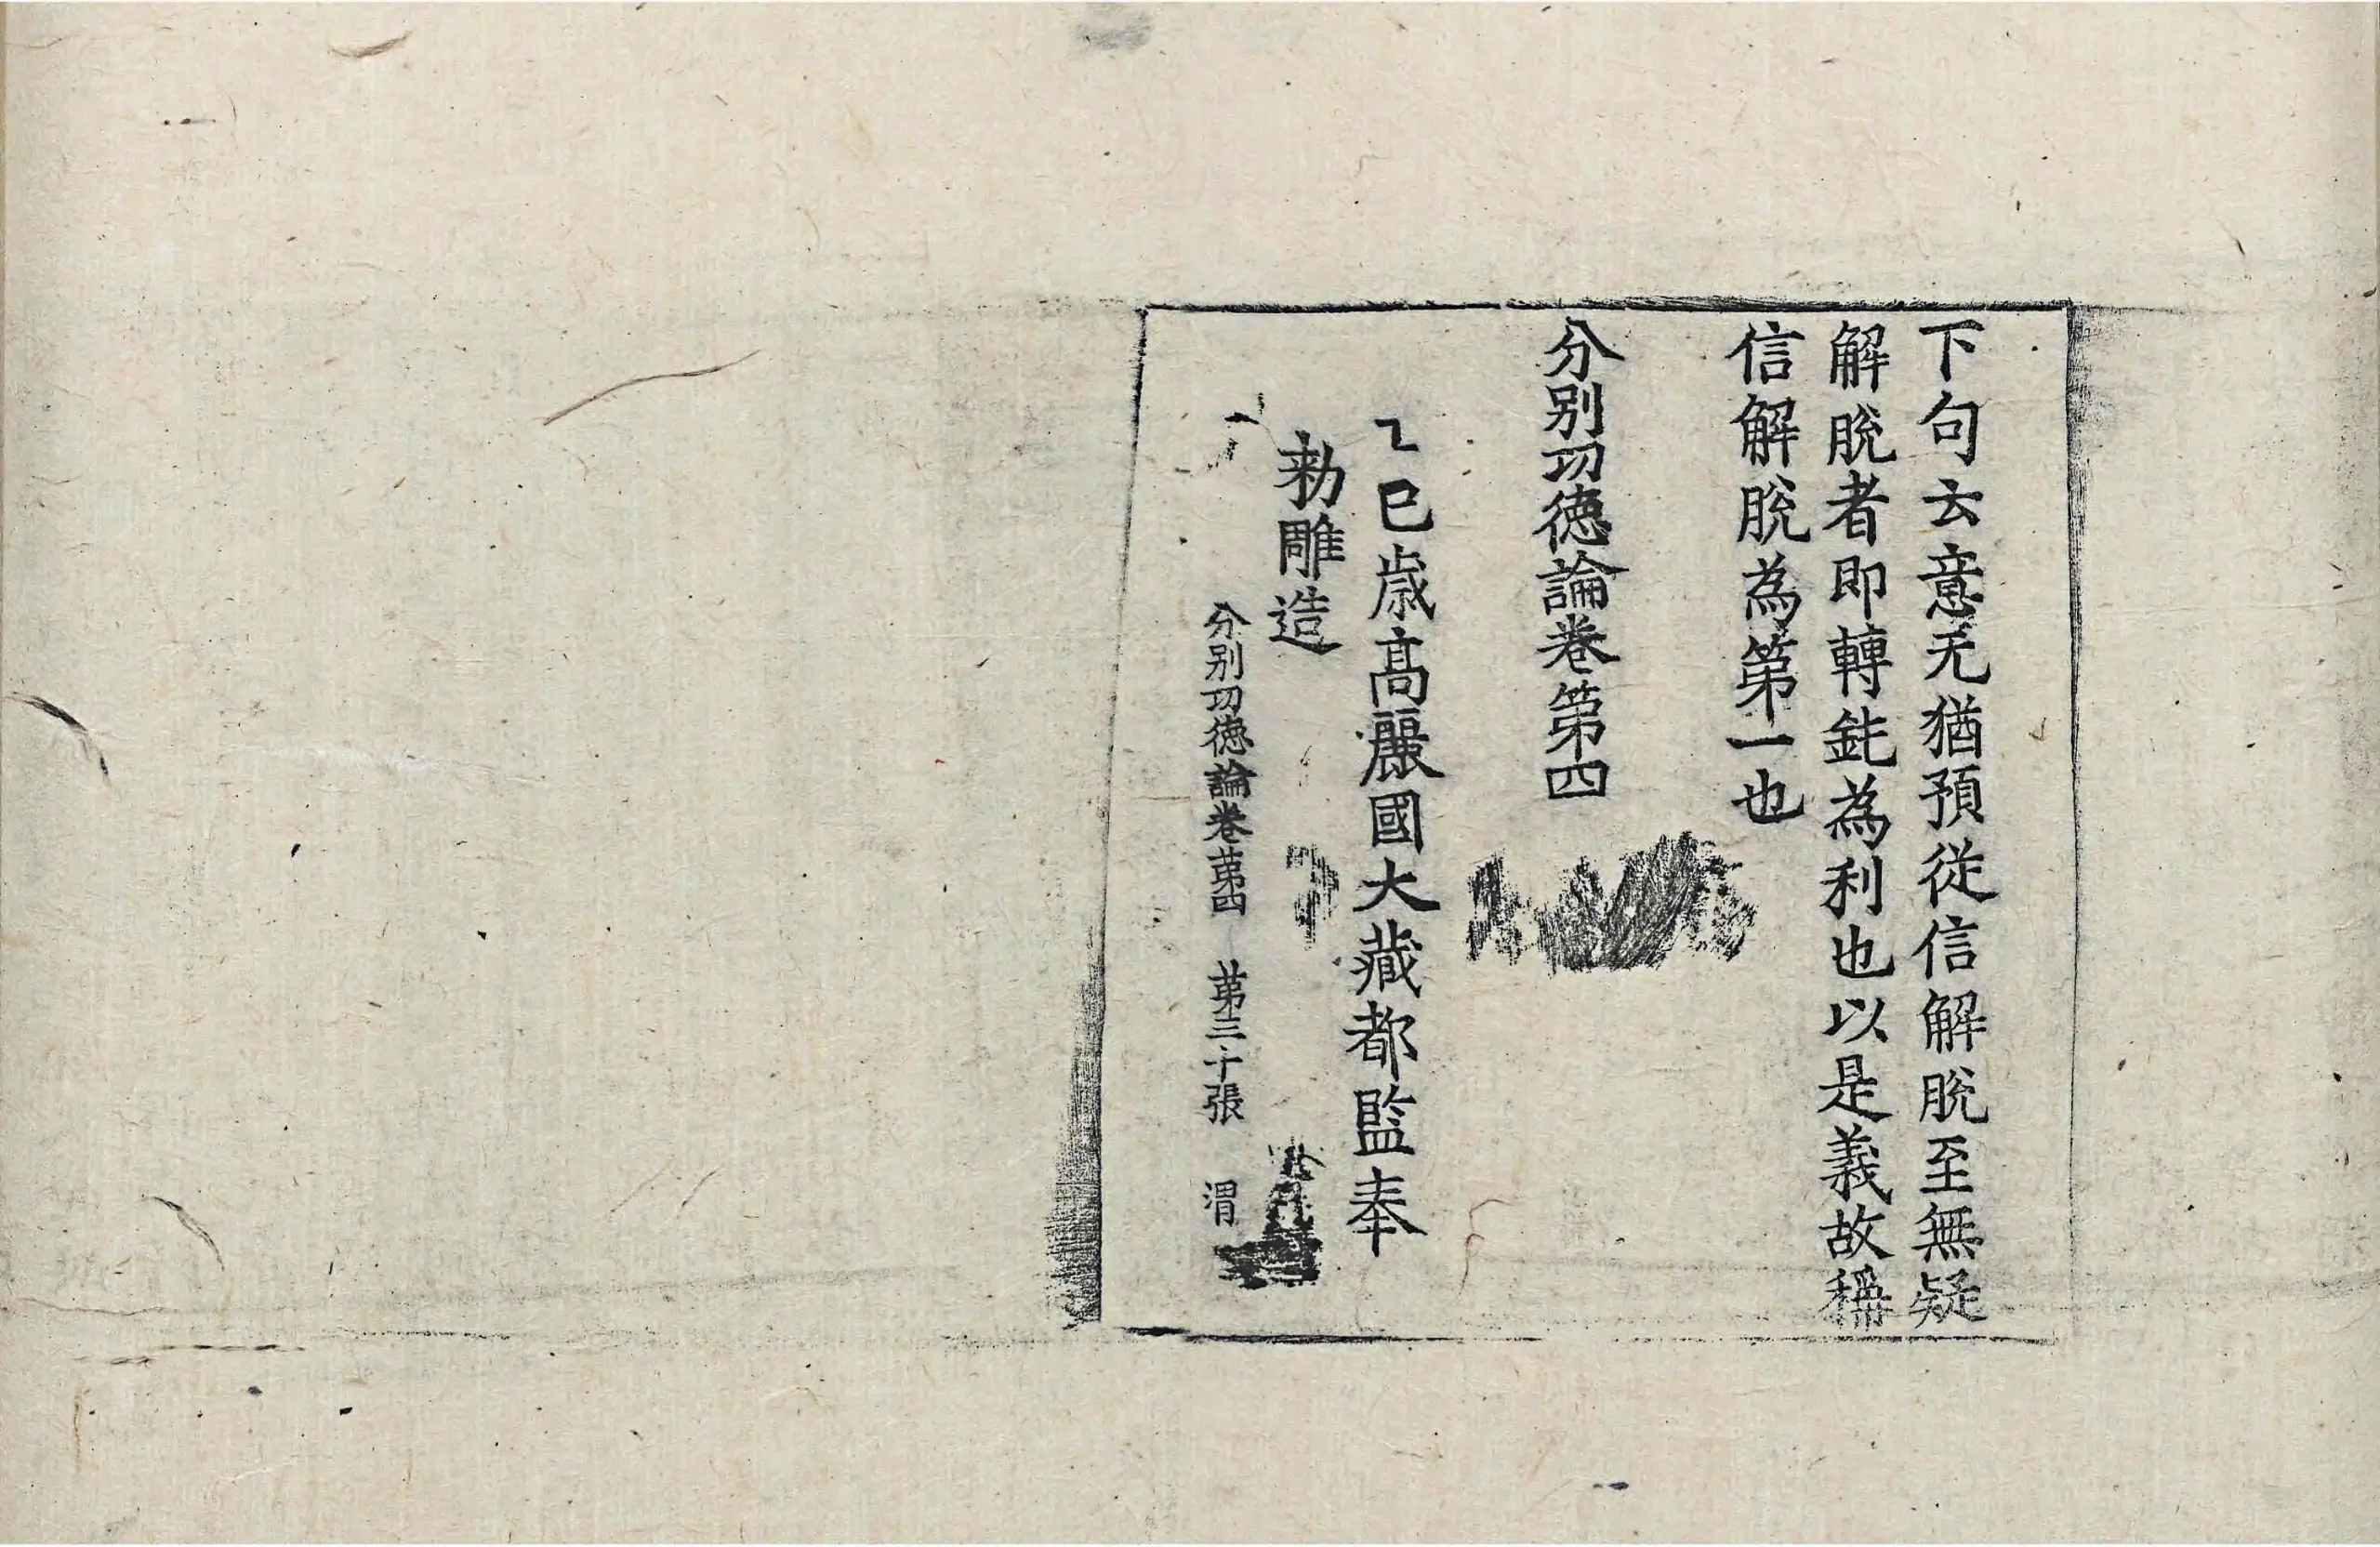 下句云意无猶預從信解脫至無疑
解脫者即轉鈍為利也以是義故稱
信解脫為第一也
分別功德論卷第四
乙巳歲高麗國大藏都監奉
勅雕造
分別功德論卷苐四 苐三十張 渭